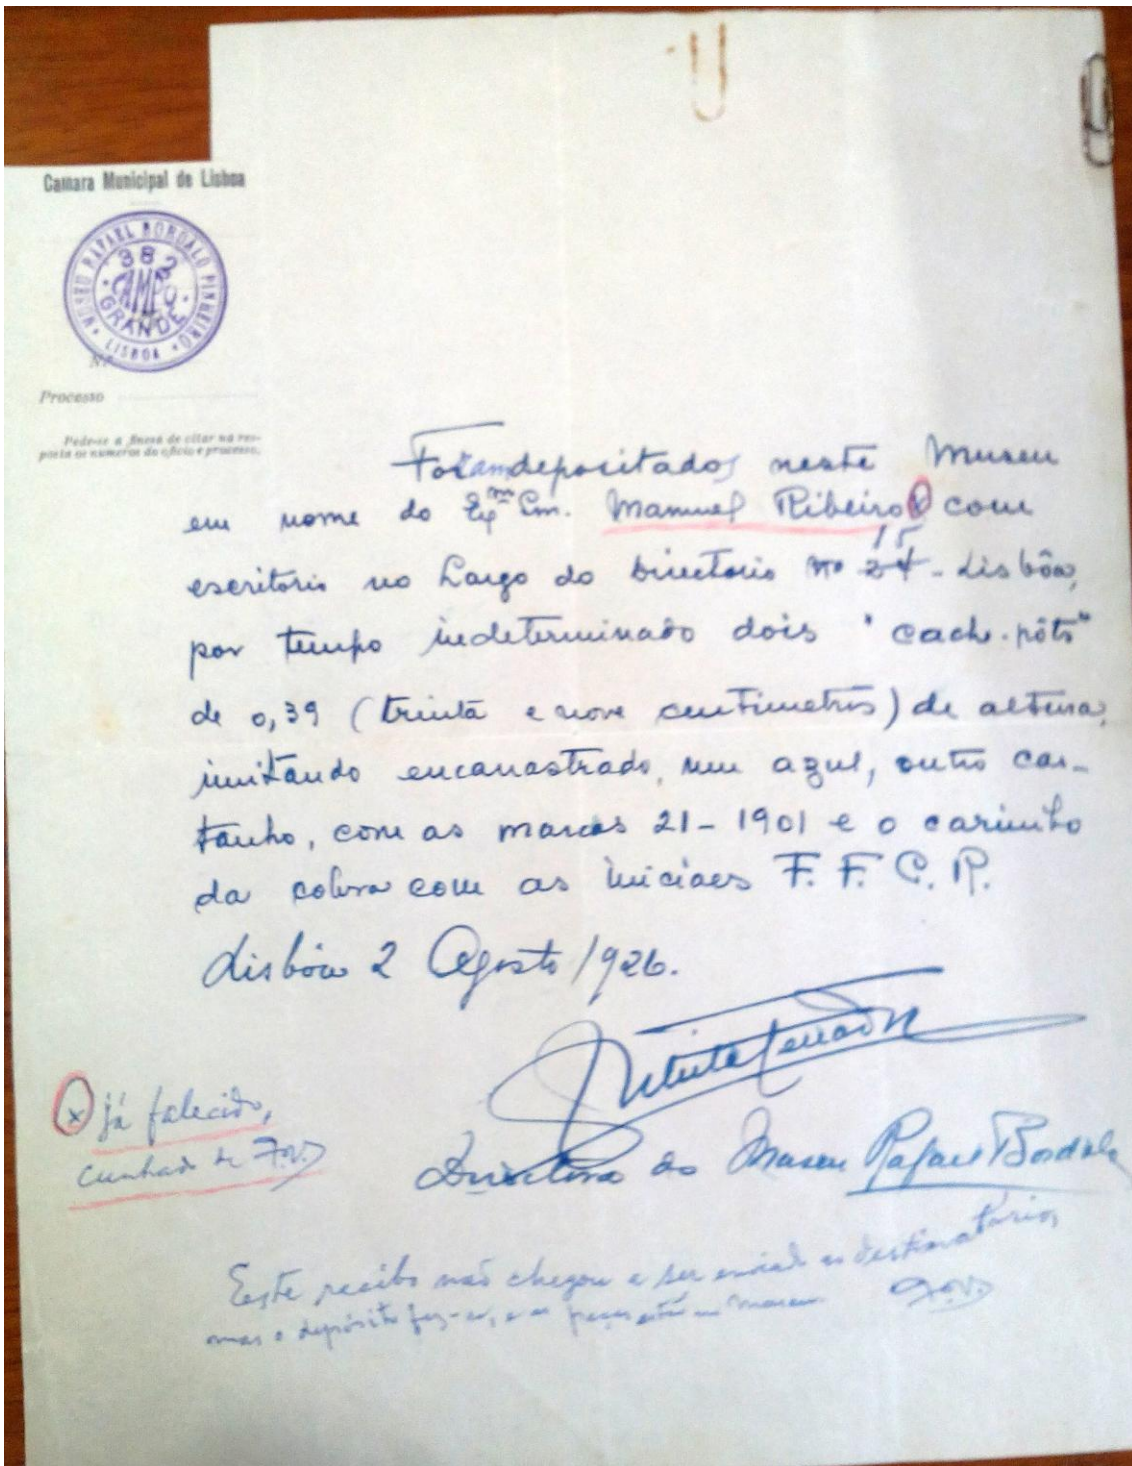 Camara Municipal de Lisboa
MUSEU RAFAEL BORDALO PINHEIRO
382
CAMPO
GRANDE
LISBOA
N.º
Processo
Pede-se a fineza de citar na res-
posta os numeros do oficio e processo.
Foram depositados neste Museu
em nome do Exmº Snr. Manuel Ribeiro x com
15
escritorio no Largo do Directorio nº 24 - Lisbôa,
por tempo indeterminado dois "cache-pôts"
de 0,39 (trinta e nove centimetros) de altura,
imitando encanastrado, um azul, outro cas-
tanho, com as marcas 21-1901 e o carimbo
da cobra com as iniciaes F. F. C. R.
Lisbôa 2 Agosto 1926.
x já falecido,
cunhado de
Directora do Museu Rafael Bordalo
Este recibo não chegou a ser enviado ao destinatario,
mas o depósito fez-se, e as peças estão no Museu.